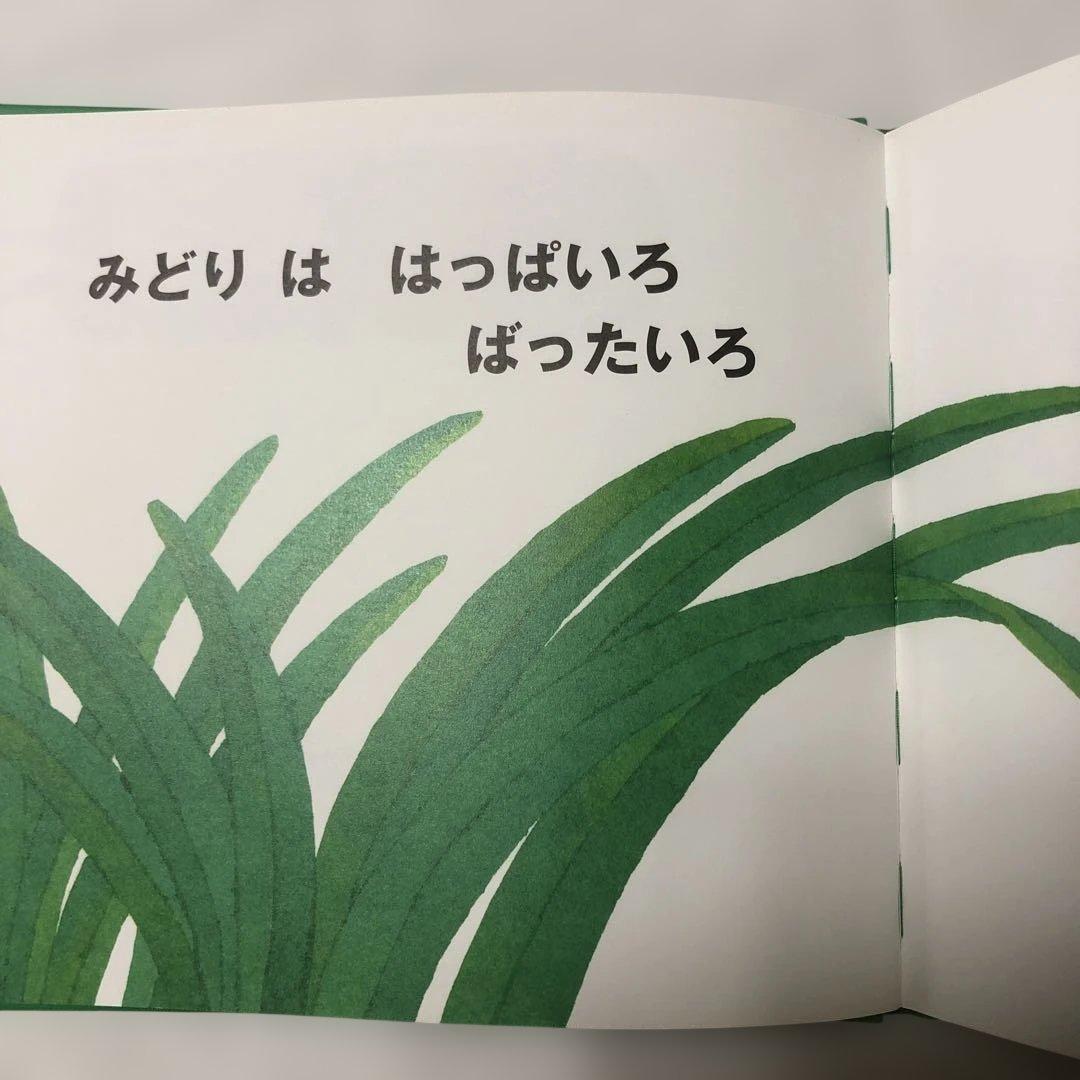 みどり は　はっぱいろ
ばったいろ